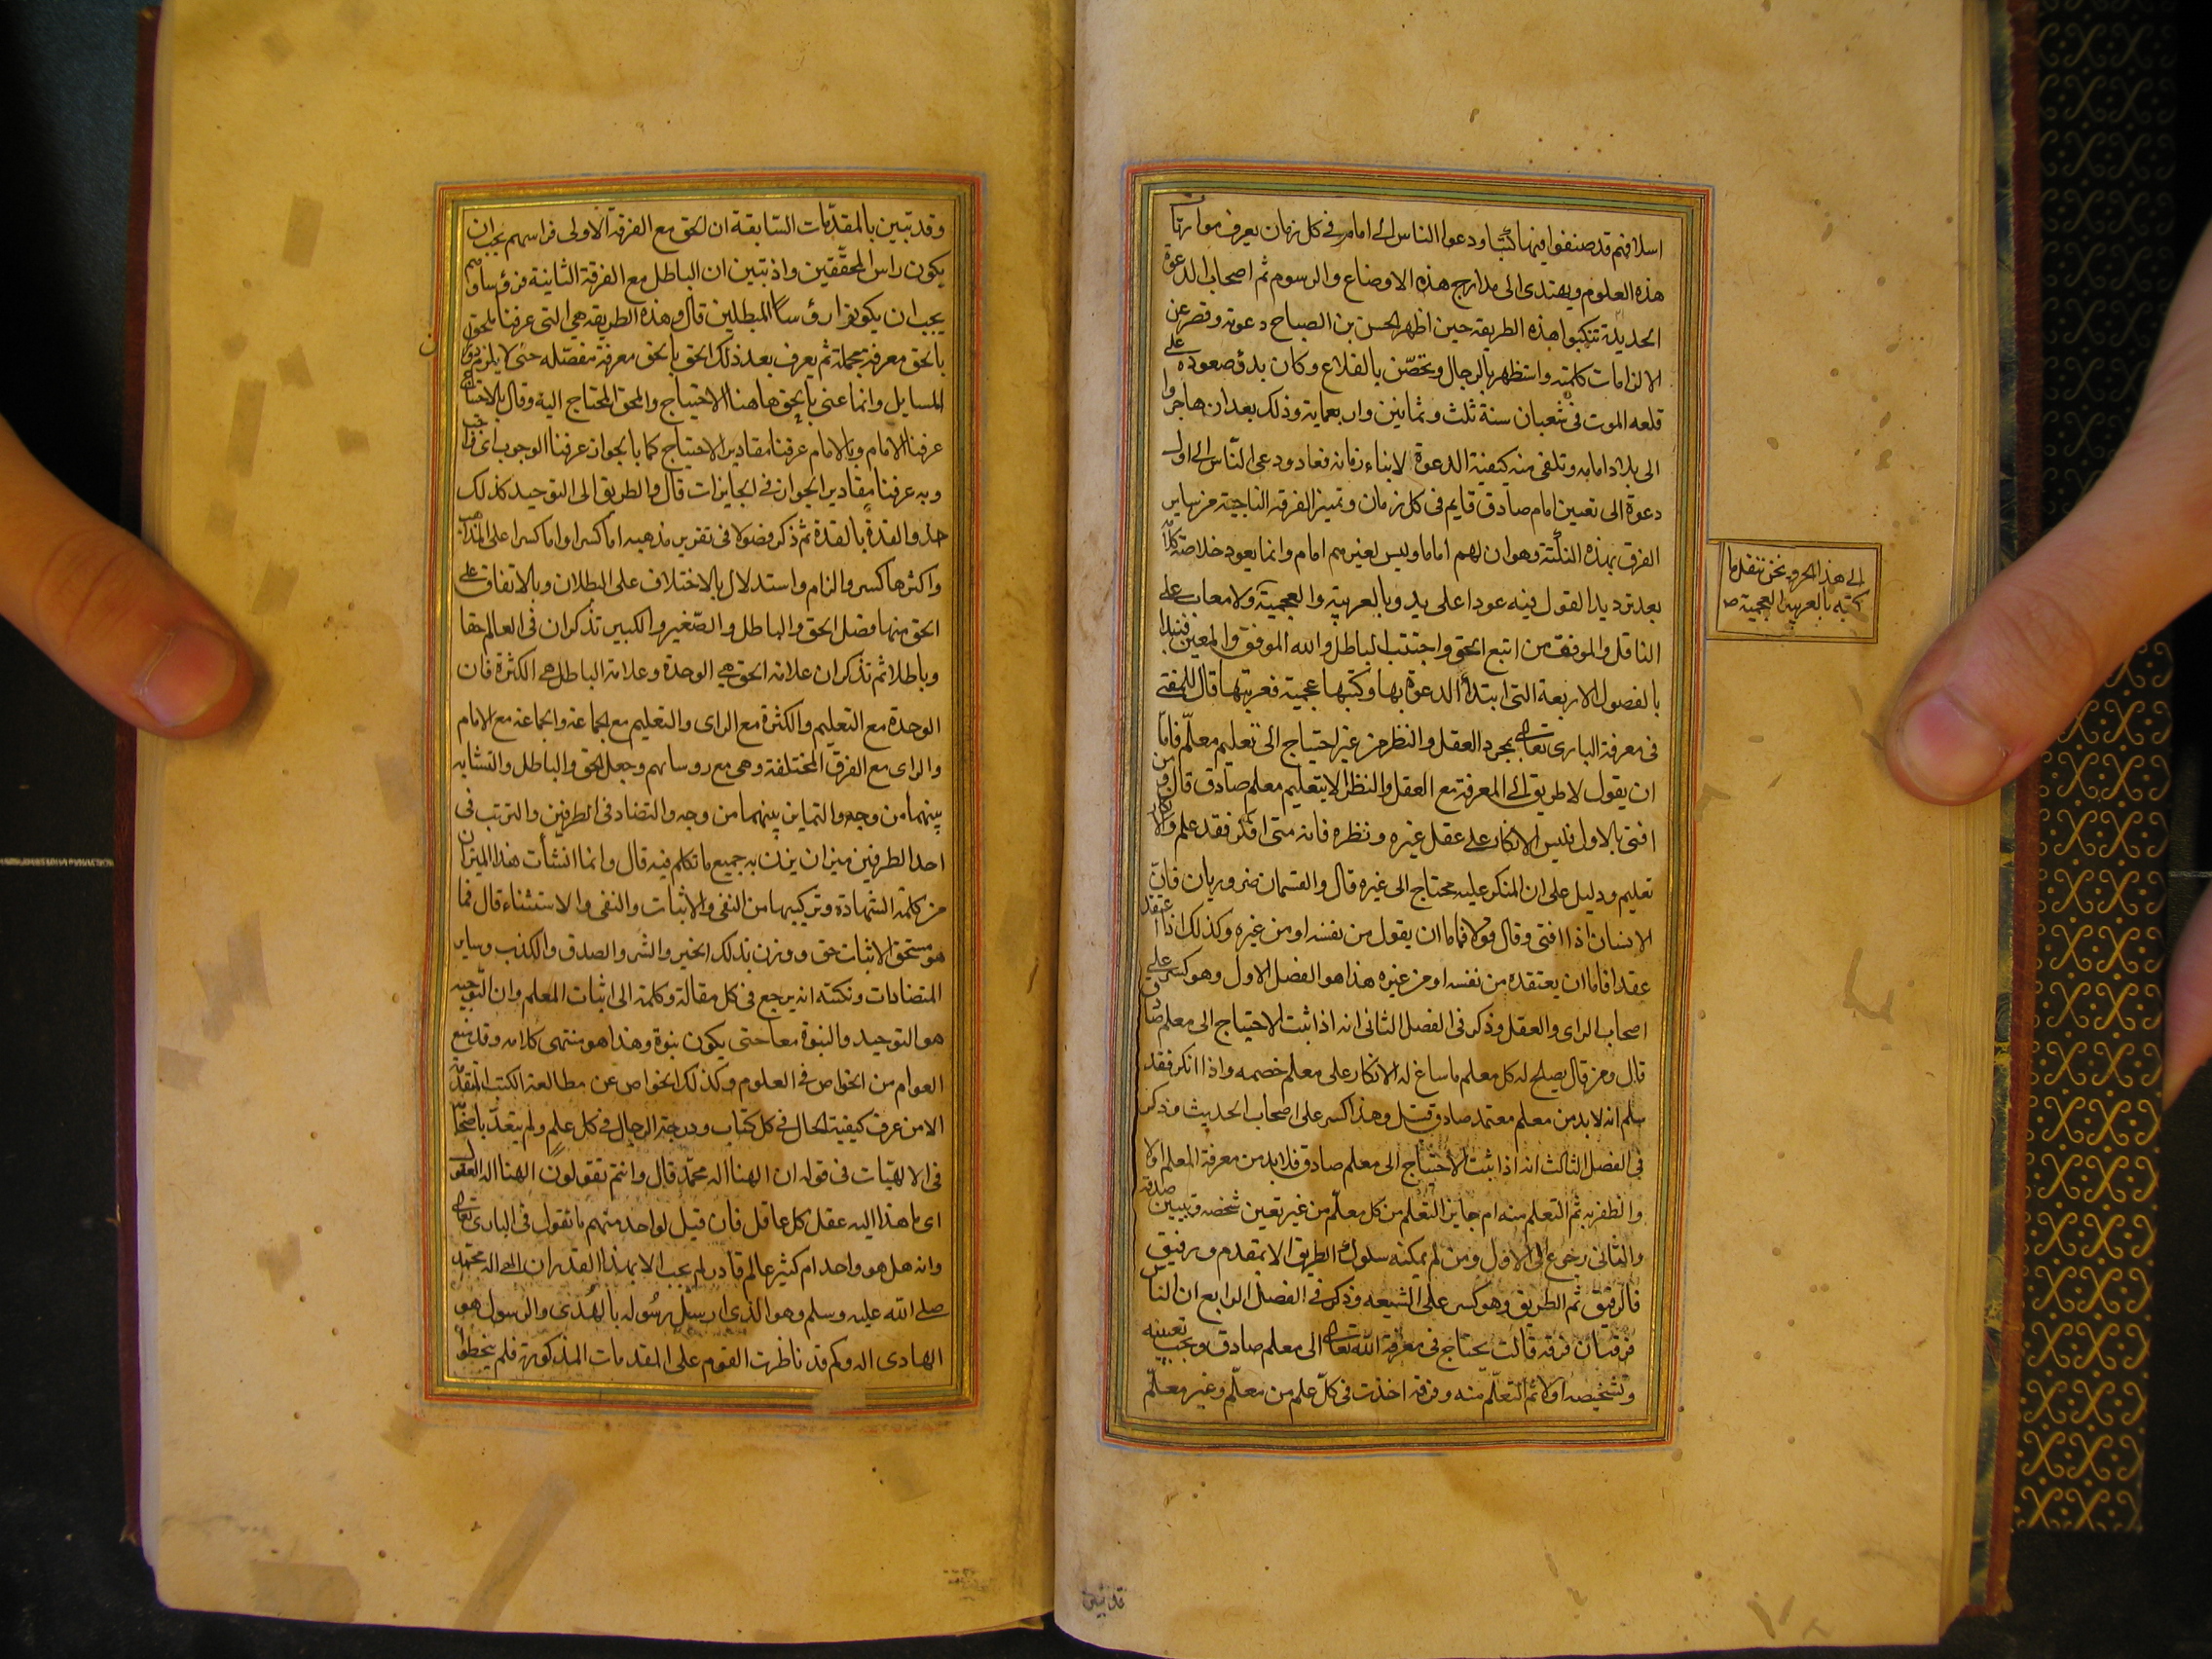 اسلافهم قد صنفوا فيها كتبا ودعوا الناس الى امام في كل زمان يعرف موازنات
هذه العلوم ويهتدى الى مدارج هذه الاوضاع والرسوم ثم اصحاب الدعوة
الجديدة تنكبوا هذه الطريقه حين اظهر الحسن بن الصباح دعوته وقصر عن
الالزامات كلمته واستظهر بالرجال وتحصّن بالقلاع وكان بدؤ صعوده على
قلعه الموت في شعبان سنة ثلث وثمانين واربعماية وذلك بعد ان هاجر
الى بلاد امامه وتلقى منه كيفية الدعوة لابناء زمانه فعاد ودعى النّاس الى اول
دعوة الى تعيين امام صادق قايم في كل زمان وتميز الفرقه الناجية من ساير
الفرق بهذه النكتة وهو ان لهم اماما وليس لغيرهم امام وانما يعود خلاصة كلامه
بعد ترديد القول فيه عودا على بدو بالعربية والعجمية ولا معاب على
الناقل والموفق من اتبع الحق واجتنب الباطل والله الموفق والمعين فنبدا
بالفصول الاربعة التى ابتدأ الدعوة بها وكتبها عجمية فعربتها قال للمفتى
فى معرفة البارى تعالى بمجرد العقل والنظر من غير احتياج الى تعليم معلّم فامّا
ان يقول لا طريق الى المعرفة مع العقل والنظر الا بتعليم معلم صادق قال ومن
افتى بالاول فليس الانكار على عقل غيره ونظره فانه متى انكر فقد علم والانكار
تعليم ودليل على ان المنكر عليه محتاج الى غيره قال والقسمان ضروريان فان
الانسان اذا افتى وقال قولا فاما ان يقول من نفسه او من غيره وكذلك اذا اعتقد
عقدا فاما ان يعتقده من نفسه او من غيره هذا هو الفصل الاول وهو كسر على
اصحاب الراى والعقل وذكر فى الفصل الثانى انه اذا ثبت الاحتياج الى معلم صادق
قال ومن قال يصلح له كل معلم ما ساغ له الانكار على معلم خصمه واذا انكر فقد
سلم انه لا بد من معلم معتمد صادق قيل وهذا كسر على اصحاب الحديث وذكر
فى الفصل الثالث انه اذا ثبت الاحتياج الى معلم صادق فلا بد من معرفة المعلم اولا
والظفر به ثم التعلم منه ام جايز التعلم من كل معلّم من غير تعين شخصه وتبيين صدقه
والثانى رجوع الى الاول ومن لم يمكنه سلوك الطريق الا بمقدم ورفيق
فالرفيق ثم الطريق وهو كسر على الشيعه وذكر فى الفصل الرابع ان الناس
فرقتان فرقه قالت يحتاج فى معرفة الله تعالى الى معلم صادق ويجب تعيينه
وتشخيصه اولا ثم التعلّم منه وفرقة اخذت فى كلّ علم من معلّم وغير معلّم
الى هذا الحرف ونحن ننقل ما
كتبه بالعربية العجمية صح
قد تبين
وقد تبين بالمقدّمات السّابقة ان الحق مع الفرقة الاولى فراسهم يجب ان
يكون راس المحققين واذ تبين ان الباطل مع الفرقة الثانية فرؤساوهم
يجب ان يكونوا رؤسا المبطلين قال وهذه الطريقه هى التى عرفنا المحق
بالحق معرفة مجملة ثم يعرف بعد ذلك الحق بالمحق معرفة مفصّله حتى لا يلزم دوران
المسايل وانما عنى بالحق هاهنا الاحتياج والمحق المحتاج اليه وقال بالاحتياج
عرفنا الامام وبالامام عرفنا مقادير الاحتياج كما بالجواز عرفنا الوجوب اى واجب
وبه عرفنا مقادير الجواز فى الجايزات قال والطريق الى التوحيد كذلك
حذو القذة بالقذة ثم ذكر فصولا فى تقرير مذهبه اما كسرا واما كسرا على المذاهب
واكثرها كسر والزام واستدلال بالاختلاف على البطلان وبالاتفاق على
الحق منها فصل الحق والباطل والصّغير والكبير تذكر ان فى العالم حقا
وباطلا ثم تذكر ان علامة الحق هى الوحدة وعلامة الباطل هى الكثرة فان
الوحدة مع التعليم والكثرة مع الراى والتعليم مع الجماعة والجماعة مع الامام
والراى مع الفرق المختلفة وهى مع روسايهم وجعل الحق والباطل والتشابه
بينهما من وجه والتماين بينهما من وجه والتضاد فى الطرفين والترتب فى
احد الطرفين ميزان يزن به جميع ما تكلم فيه قال وانما انشأت هذا الميزان
من كلمة الشهادة وتركيبها من النفى والاثبات والنفى والاستثناء قال فما
هو مستحق الاثبات حق ووزن بذلك الخير والشر والصدق والكذب وساير
المتضادات ونكتته انه يرجع فى كل مقالة وكلمة الى اثبات المعلم وان التوحيد
هو التوحيد والنبوة معا حتى يكون نبوة وهذا هو منتهى كلامه وقد منع
العوام من الخواص فى العلوم وكذلك الخواص عن مطالعة الكتب المتقدّمة
الا من عرف كيفية الحال فى كل كتاب ودرجة الرجال فى كل علم ولم يتعدّ باصحابه
فى الالهيّات فى قوله ان الهنا اله محمّد قال وانتم تقولون الهنا اله العقول
اى ما هذا اليه عقل كل عاقل فان قيل لواحد منهم ما تقول فى البارى تعالى
وانه هل هو واحد ام كثير عالم قادر لم يجب الا بهذا القدر ان الهى اله محمّد
صلى الله عليه وسلم وهو الذى ارسل رسُوله بالهُدى والرسول هو
الهادى اله وكم قد ناظرت القوم على المقدمات المذكورة فلم يتخطوا